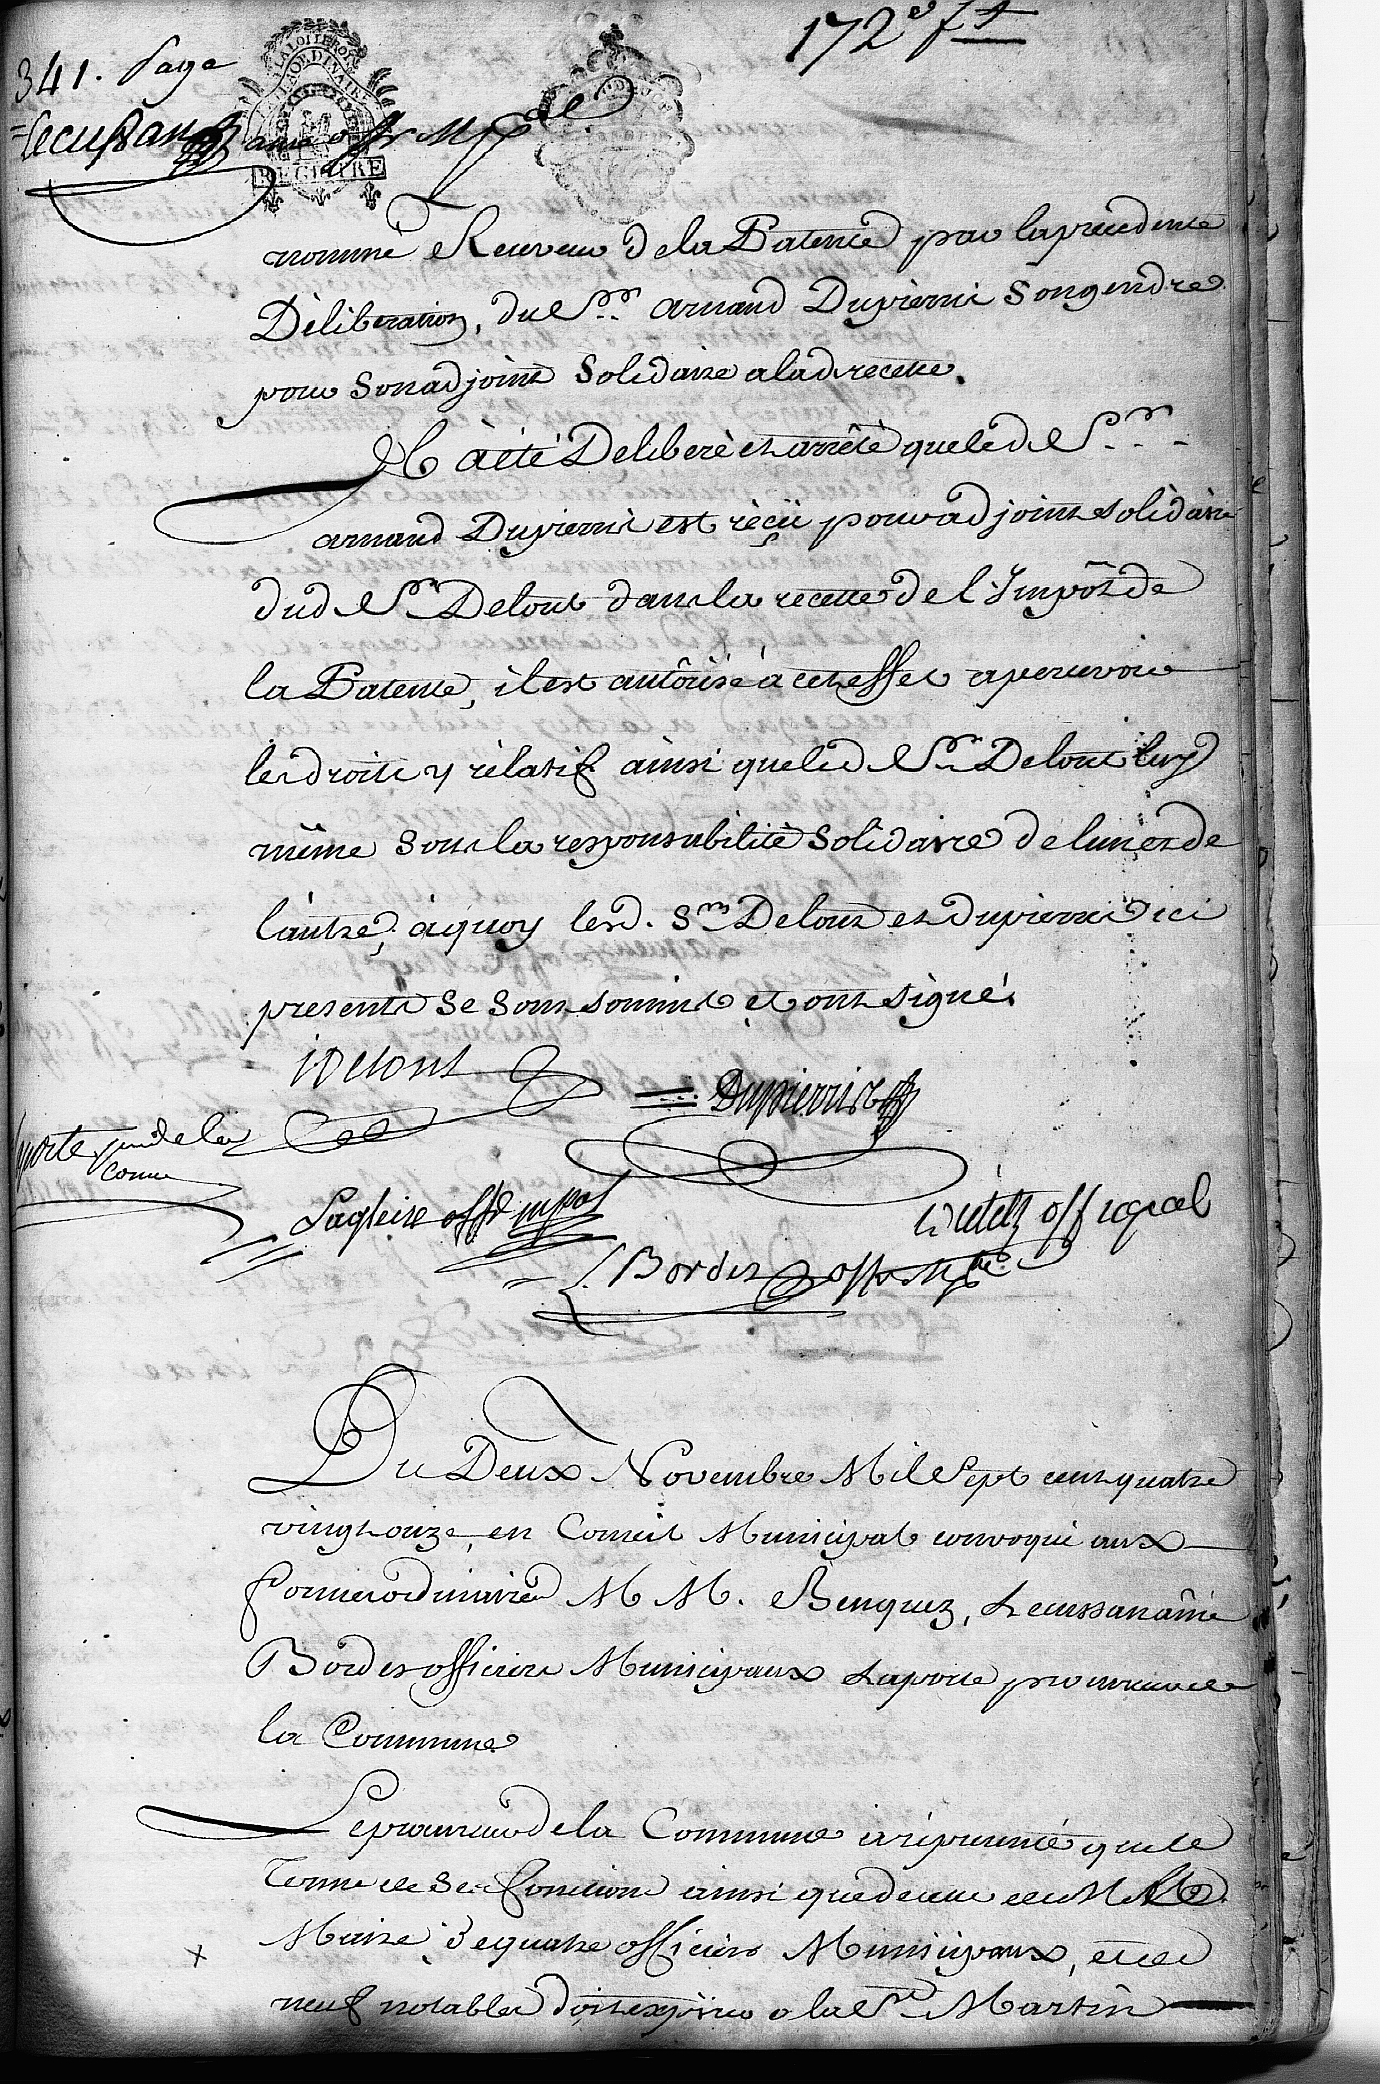 172e ft
341. Page
LA LOI LE ROI
REGISTRE
Lecussan ainé offr Mpal
nommé Receveur de la Patente par la precedente
Déliberation, du Sr. arnaud Dupierris Son gendre
pour Son adjoint Solidaire a lad recette.
Il à été Deliberé et arrêté que led Sr.
arnaud Dupierris est réçû pour adjoint solidaire
dud Sr Delout dans la recette de l'Impôt de
la Patente, il est autôrisé à cet effet a percevoir
les droits y rélatifs ainsi que led Sr Delout luy
même Sous la responsabilité Solidaire de l'un et de
l'autre, à quoy lesd. Srs Delout et dupierris ici
presents Se Sont soumis et ont signé.
Delout
Dupierris
Laporte pr de la
Comne
Lagleise offr mpal
offr mpal
Bordes offr Mpal
Du Deux Novembre Mil Sept cent quatre
vingt onze, en Conseil Municipal convoqué aux
formes ordinaires M M. Benquez, Lecussan ainé
Bordes officiers Municipaux Laporte procureur de
la Commune
Le procureur de la Commune a réprésenté que le
Terme de Ses fonctions ainsi que de celles de M Le
Maire, de quatre officiers Municipaux, et de
neuf notables doit expirer a la St Martin